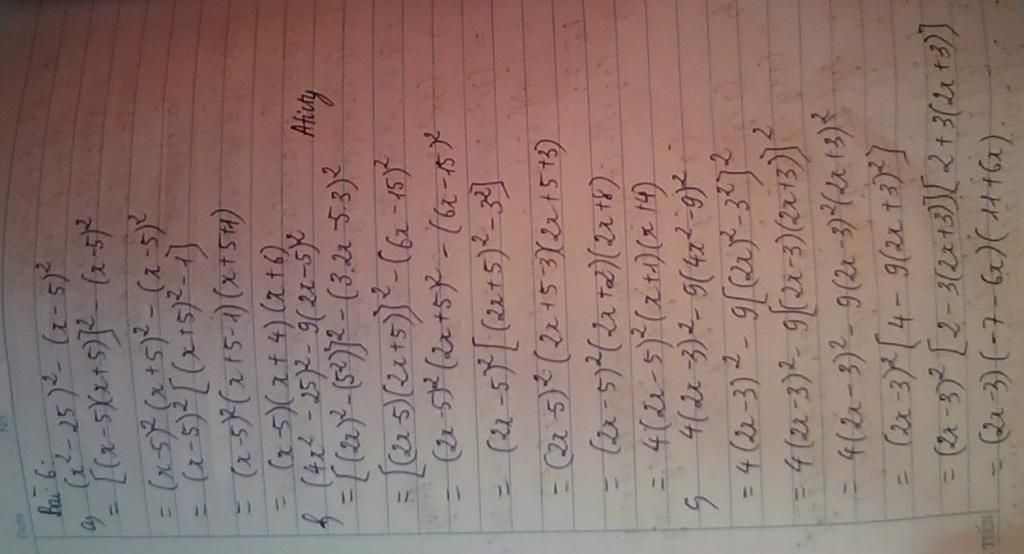 Bài 6:
a, (x²-25)² - (x-5)²
= [(x-5)(x+5)]² - (x-5)²
= (x-5)²(x+5)² - (x-5)²
= (x-5)²[(x+5)² - 1]
= (x-5)²(x+5-1)(x+5+1)
= (x-5)(x+4)(x+6)
b, (4x²-25)² - 9(2x-5)²
= [(2x)² - (5²)]² - (3.2x-5.3)²
= [(2x-5)(2x+5)]² - (6x-15)²
= (2x-5)²(2x+5)² - (6x-15)²
= (2x-5)²[(2x+5)² - 3²]
= (2x-5)²(2x+5-3)(2x+5+3)
= (2x-5)²(2x+2)(2x+8)
= 4(2x-5)²(x+1)(x+4)
c, 4(2x-3)² - 9(4x²-9)²
= 4(2x-3)² - 9[(2x)² - 3²]²
= 4(2x-3)² - 9[(2x-3)(2x+3)]²
= 4(2x-3)² - 9(2x-3)²(2x+3)²
= (2x-3)²[4 - 9(2x+3)²]
= (2x-3)²[2-3(2x+3)][2+3(2x+3)]
= (2x-3)(-7-6x)(11+6x)